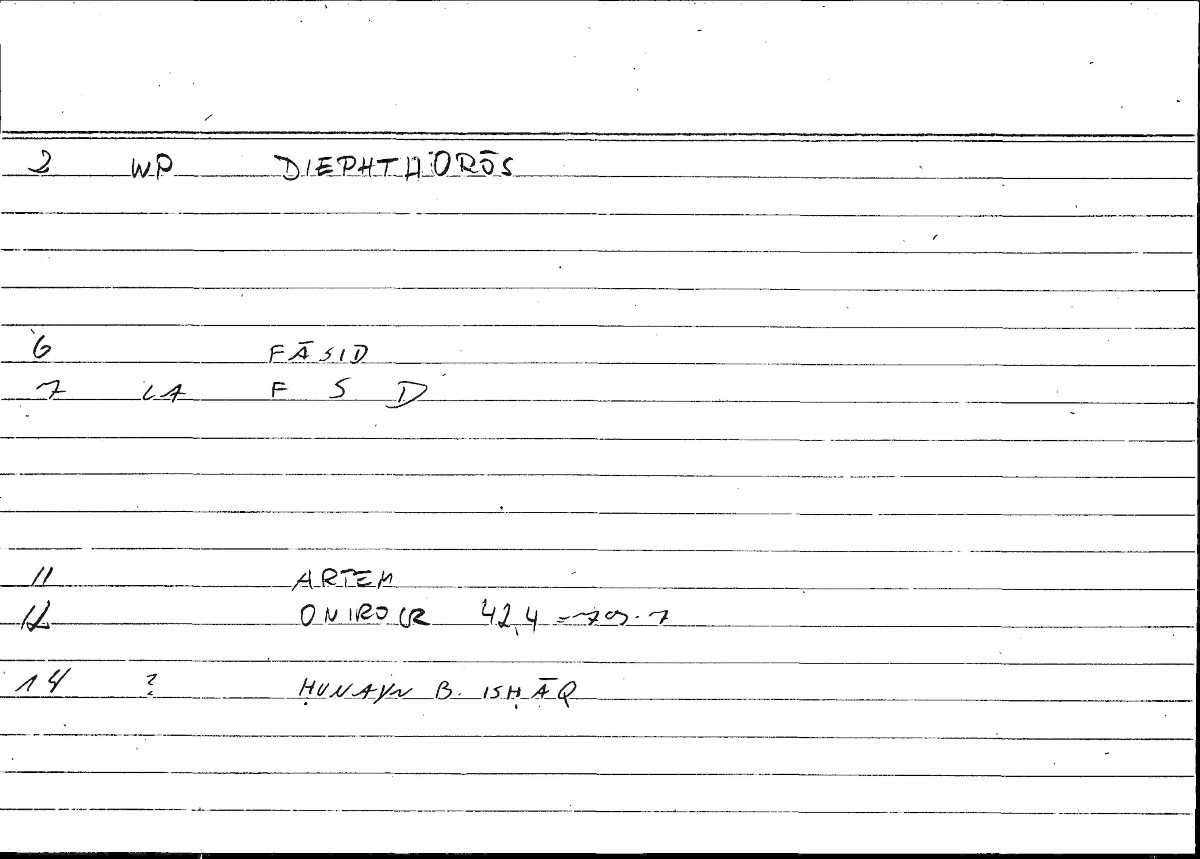 2 WP DIEPHTHORŌS
6 FĀSID
7 LA F S D
11 ARTEM
12 ONIROCR 42,4 = 79.7
14 ? ḤUNAYN B. ISḤĀQ